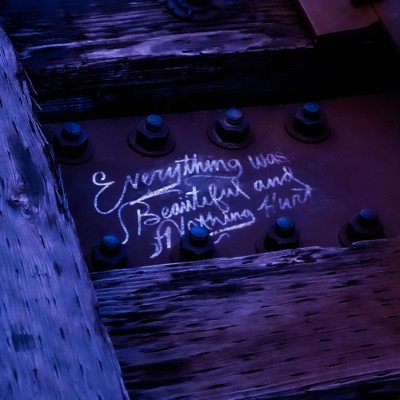 Everything was
Beautiful and
Nothing Hurt